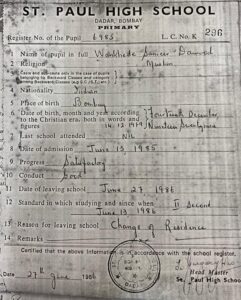 ST. PAUL HIGH SCHOOL
DADAR, BOMBAY
PRIMARY
Register No. of the Pupil 6985 L. C. No. K 296
1 Name of pupil in full Wankhede Sameer Dawood
2 Religion Muslim
Caste and sub-caste only in the case of pupils
belonging to Backward Classes and category
among Backward Classes
4 Nationality Indian
5 Place of birth Bombay
6 Date of birth, month and year according Fourteenth December
to the Christian era, both in words and
figures 14.12.1979 Nineteen Seventynine
7 Last school attended Nil
8 Date of admission June 13 1985
9 Progress Satisfactory
10 Conduct Good
11 Date of leaving school June 27 1986
12 Standard in which studying and since when II Second
June 13 1986
13 Reason for leaving school Change of Residence
14 Remarks
Certified that the above information is in accordance with the school register.
Date 27th June 1986
Head Master
St. Paul High School